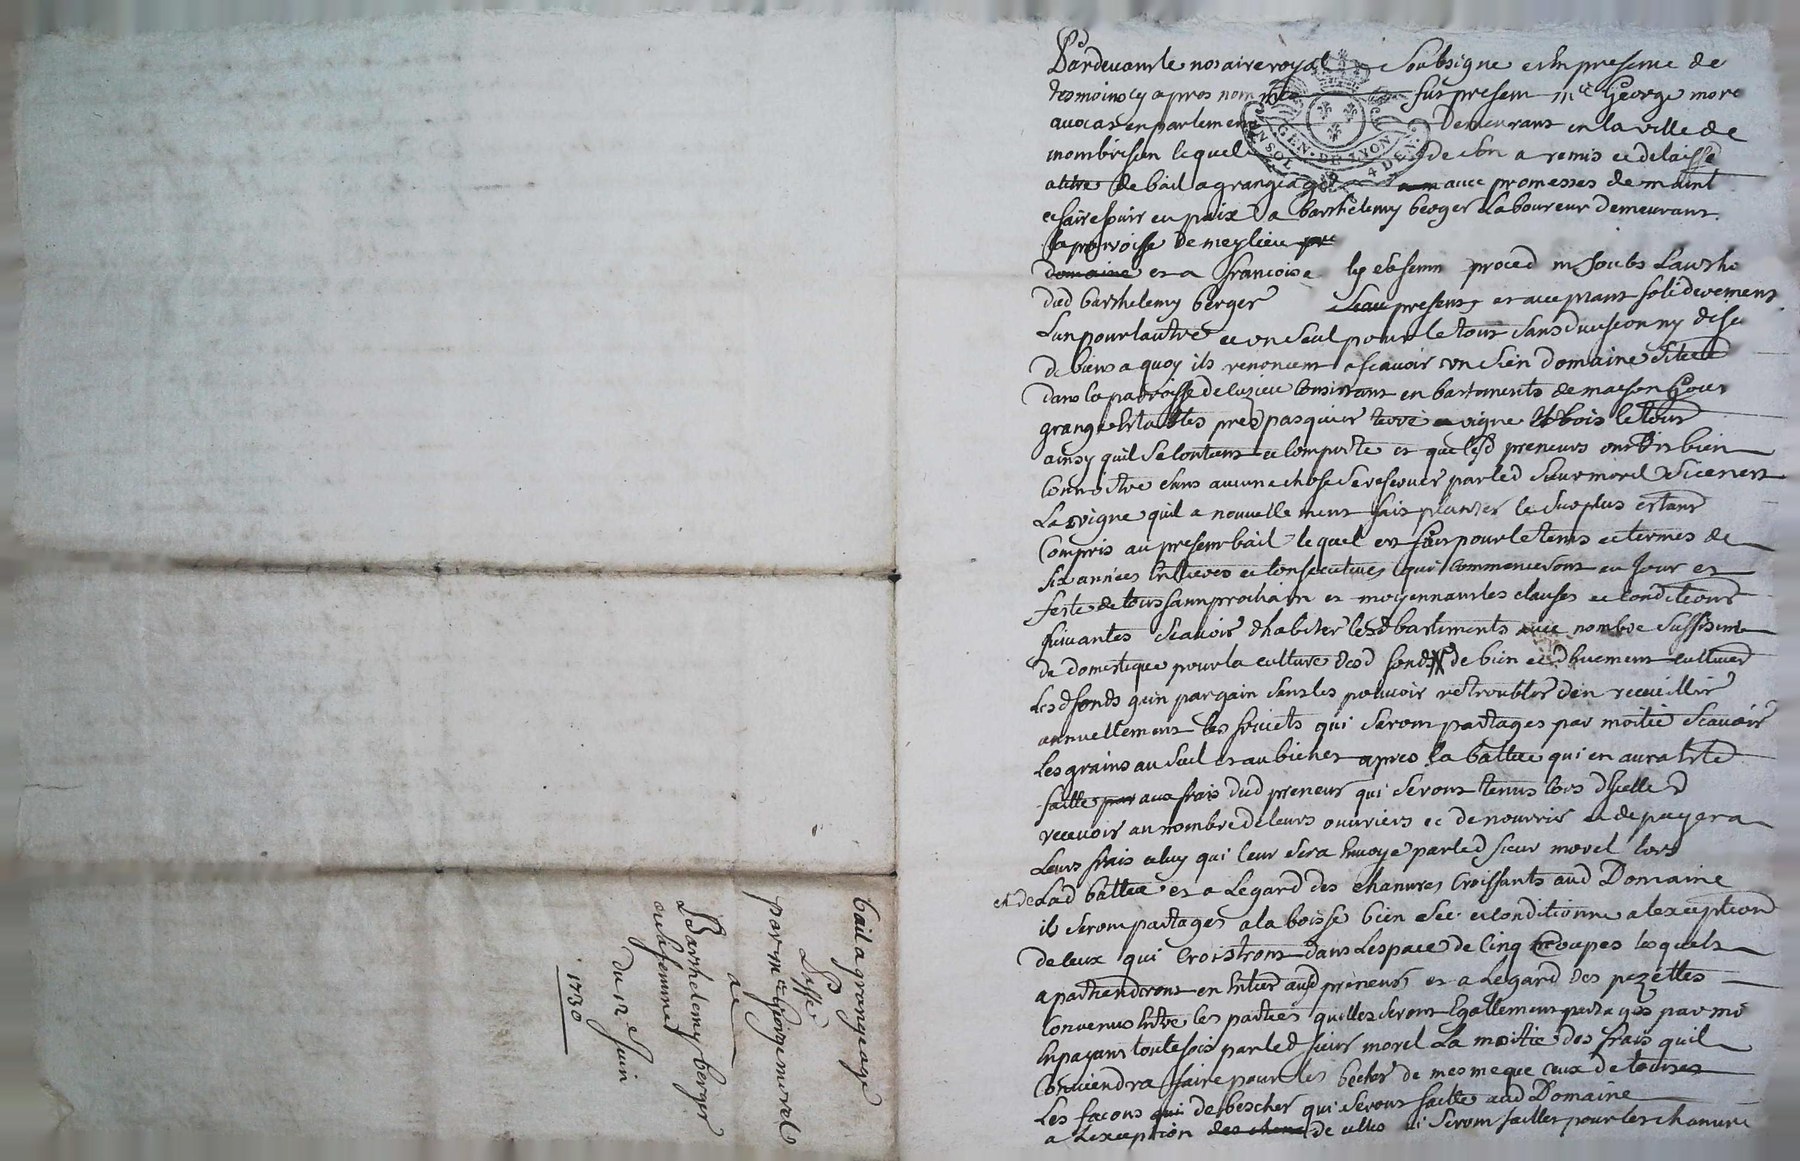 Pardevant le notaire royal Soubsigne et en presence de
tesmoins cy apres nommes fut present me George morel
avocat en parlement demeurant en la ville de
montbrison lequel de son a remis et delaisse
a titre de bail a grangeage avec promesses de maint
et faire jouir en paix a barthelemy berger Laboureur demeurant
la parroisse de meylieu
domaine et a francoise
dud barthelemy berger presents et acceptant solidairement
Lun pour lautre et un seul pour le tout sans division ny discu
de biens a quoy ils renoncent a scavoir un sien domaine situe
dans la parroisse de luzieu consistant en bastiments de maison
grange estables pres pasquier terre et vigne et bois le tout
ainsy quil se contient et comporte et que lesd preneurs ont dit bien
connoitre sans aucune chose se reserver par led sieur morel si ce nest
La vigne quil a nouvellement fait planter le surplus estant
Compris au present bail lequel est fait pour le tems et termes de
six années entieres et consecutives qui commenceront au jour et
feste de toussaint prochain et moyennant les clauses et conditions
suivantes scavoir dhabiter lesd bastiments avec nombre suffisant
de domestique pour la culture desd fonds de bien et dhuement cultiver
Lesd fonds gain par gain sans les pouvoir retroubler den receuillir
annuellement les fruicts qui seront partages par moitie scavoir
Les grains au sueil et au bichet apres la battue qui en aura este
faitte par aux frais dud preneur qui seront tenus lors dicelle
recevoir au nombre de leurs ouvriers et de nourrir et de payer a
Leurs frais celuy qui leur sera envoye par led sieur morel lors
et de Lad battue et a Legard des chanvres croissants aud Domaine
ils seront partages a la boisse bien sec et conditionne a lexception
de ceux qui croistront dans Lespace de cinq coupes lesquels
apartiendront en entier aud preneurs et a Legard des pezettes
convenu entre les parties quelles seront egallement partages par moi
en payant toutefois par led sieur morel La moitie des frais quil
conviendra faire pour les becher de mesme que ceux de toutes
Les facons qui de bescher qui seront faitte aud Domaine
a Lexception de celles qui seront faittes pour les chanvre
bail a grangeage
passé
par me George morel
a
Barthelemy berger
et sa femme
du 12e Juin
1730